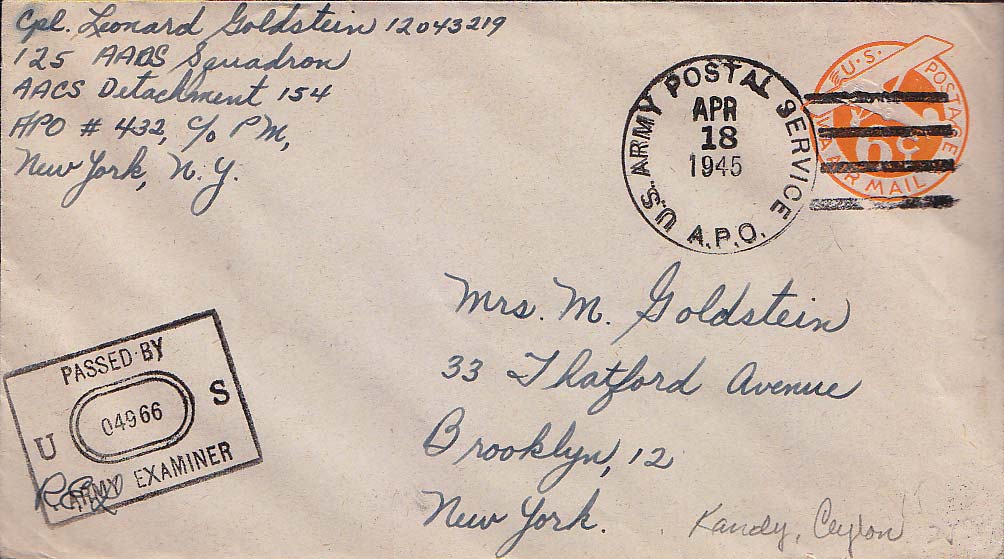 Cpl. Leonard Goldstein 12043219
125 AACS Squadron
AACS Detachment 154
APO # 432, c/o PM,
New York, N.Y.
U.S. ARMY POSTAL SERVICE
APR
18
1945
A.P.O.
U.S. POSTAGE
6c
VIA AIR MAIL
Mrs. M. Goldstein
33 Thatford Avenue
Brooklyn, 12
New York.
Kandy, Ceylon
PASSED BY
U 04966 S
ARMY EXAMINER